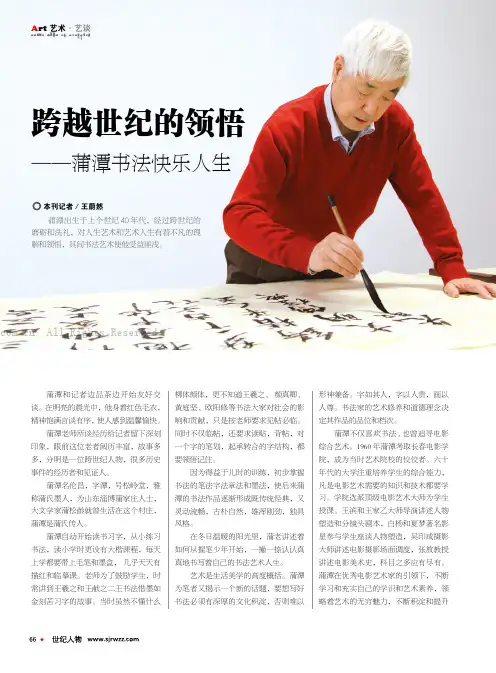 Art 艺术·艺谈
跨越世纪的领悟
——蒲潭书法快乐人生
本刊记者 / 王蔚然
蒲潭出生于上个世纪40年代，经过跨世纪的
磨砺和洗礼，对人生艺术和艺术人生有着不凡的理
解和领悟，其间书法艺术使他受益匪浅。
All Rights Reserved
蒲潭和记者边品茶边开始友好交
谈。在明亮的晨光中，他身着红色毛衣，
精神饱满言谈有序，使人感到温馨愉快。
蒲潭老师所谈经历给记者留下深刻
印象，眼前这位老者阅历丰富，故事多
多，分明是一位跨世纪人物，很多历史
事件的经历者和见证人。
蒲潭名伦昌，字潭，号惊岭堂，雅
称蒲氏墨人，为山东淄博蒲家庄人士，
大文学家蒲松龄就曾生活在这个村庄，
蒲潭是蒲氏传人。
蒲潭自幼开始读书习字，从小练习
书法，读小学时更设有大楷课程，每天
上学都要带上毛笔和墨盒，几乎天天有
描红和临摹课。老师为了鼓励学生，时
常讲到王羲之和王献之二王书法惜墨如
金刻苦习字的故事。当时虽然不懂什么
柳体颜体，更不知道王羲之、颜真卿、
黄庭坚、欧阳修等书法大家对社会的影
响和贡献，只是按老师要求见帖必临。
同时不仅临帖，还要求读帖，背帖，对
一个字的笔划，起承转合的字结构，都
要领细记住。
因为得益于儿时的训练，初步掌握
书法的笔法字法章法和墨法，使后来蒲
潭的书法作品逐渐形成既传统经典，又
灵动流畅，古朴自然，雄浑刚劲，独具
风格。
在冬日温暖的阳光里，蒲老讲述着
如何从握笔少年开始，一撇一捺认认真
真地书写着自己的书法艺术人生。
艺术是生活美学的高度概括。蒲潭
为笔者又揭示一个新的话题，要想写好
书法必须有深厚的文化积淀，否则难以
形神兼备。字如其人，字以人贵，画以
人尊。书法家的艺术修养和道德理念决
定其作品的品位和档次。
蒲潭不仅喜欢书法，也曾追寻电影
综合艺术。1960年蒲潭考取长春电影学
院，成为当时艺术院校的佼佼者。六十
年代的大学注重培养学生的综合能力，
凡是电影艺术需要的知识和技术都要学
习。学院选派顶级电影艺术大师为学生
授课。王滨和王家乙大师导演讲述人物
塑造和分镜头剧本，白杨和夏梦著名影
星参与学生座谈人物塑造，吴印咸摄影
大师讲述电影摄影场面调度，张放教授
讲述电影美术史，科目之多应有尽有。
蒲潭在优秀电影艺术家的引领下，不断
学习和充实自己的学识和艺术素养，领
略着艺术的无穷魅力，不断积淀和提升
66 世纪人物 www.sjrwzz.com